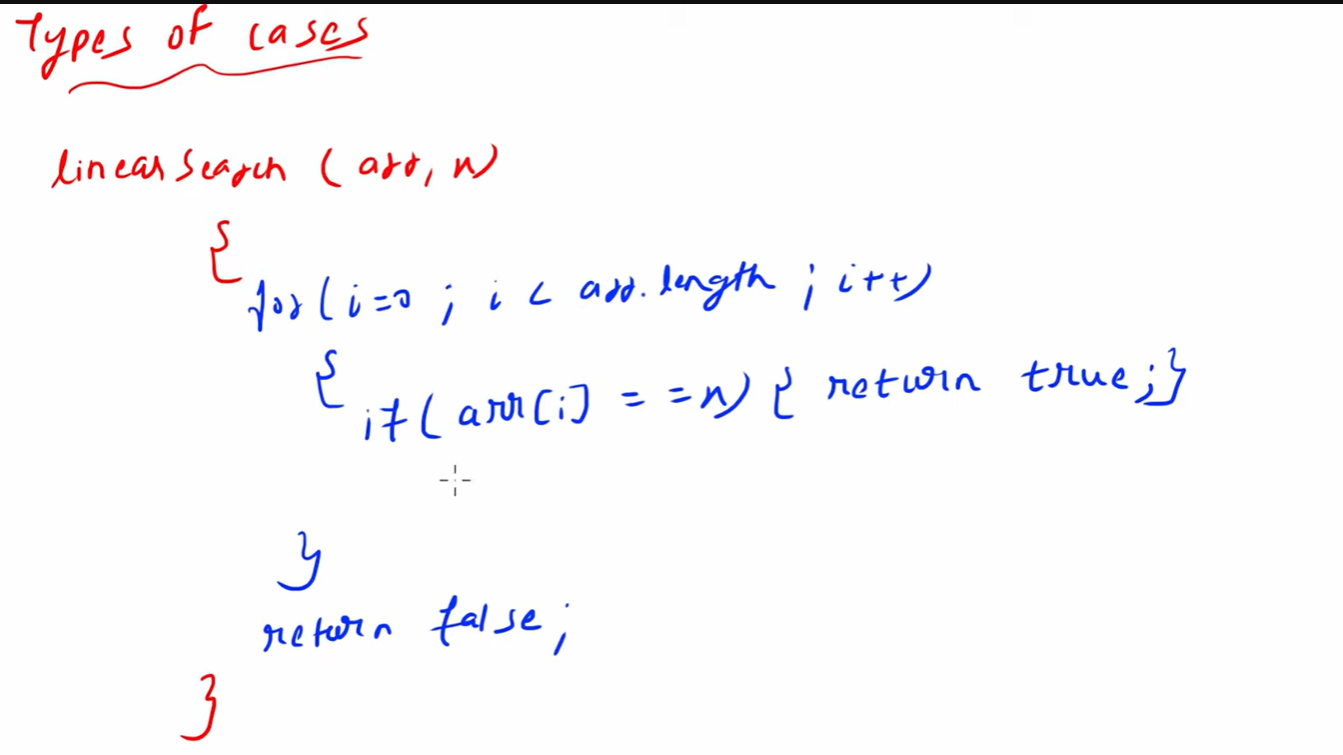 Types of cases
linearSearch ( arr, n)
{
for( i=0 ; i < arr.length ; i++)
{
if( arr[i] = =n) { return true;}
}
return false;
}